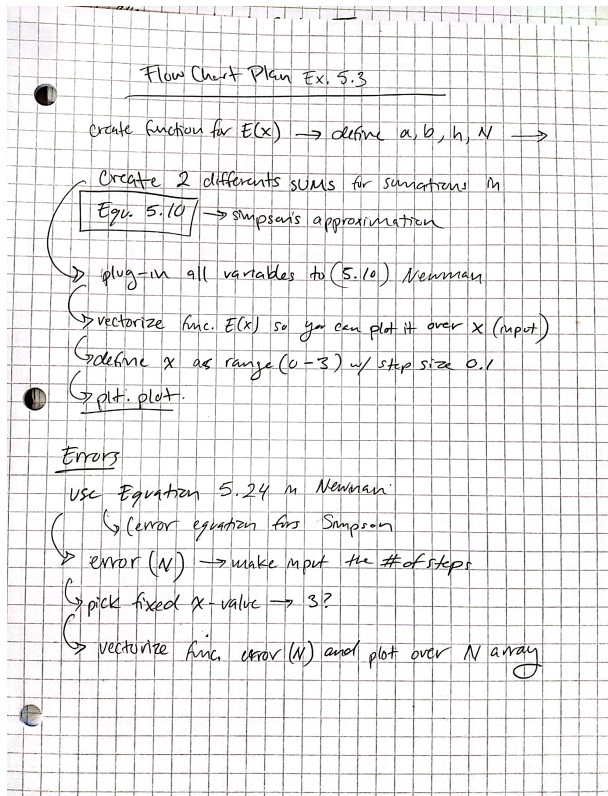 Flow Chart Plan Ex. 5.3
create function for E(x) → define a, b, h, N →
Create 2 differents sums for sumations in
Equ. 5.10 → simpson's approximation
plug-in all variables to (5.10) Newman
vectorize func. E(x) so you can plot it over x (input)
define x as range (0-3) w/ step size 0.1
plt. plot.
Errors
use Equation 5.24 in Newman
(error equation for Simpson
error (N) → make input the # of steps
pick fixed x-value → 3?
vectorize func. error (N) and plot over N array